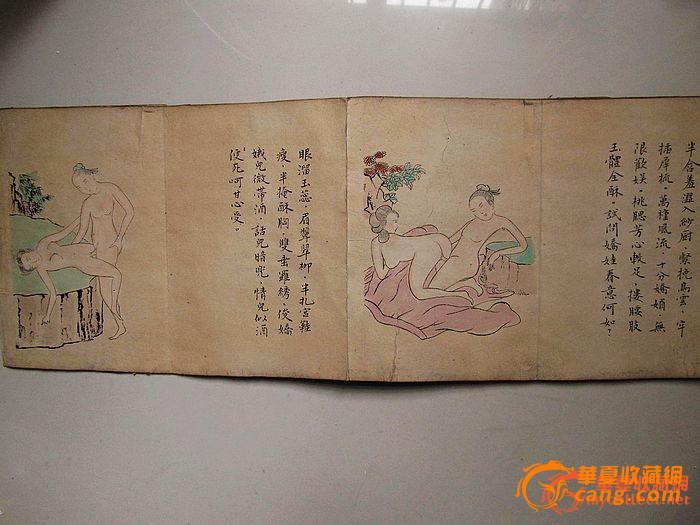 半含羞澀入紗厨，緊挽烏雲，牢
插犀梳，萬種風流，十分嬌媚，無
限歡娛。桃腮芳心軟足，摟腰股
玉體全酥。試問嬌娃春意何如？
眼溜玉蕊，眉顰翠柳，半扎宮鞋
瘦，半掩酥胸，雙垂羅綉，俊嬌
娥兒微帶酒，話兒暗呢，情兒似酒
便死呵甘心受。
華夏收藏網
cang.com